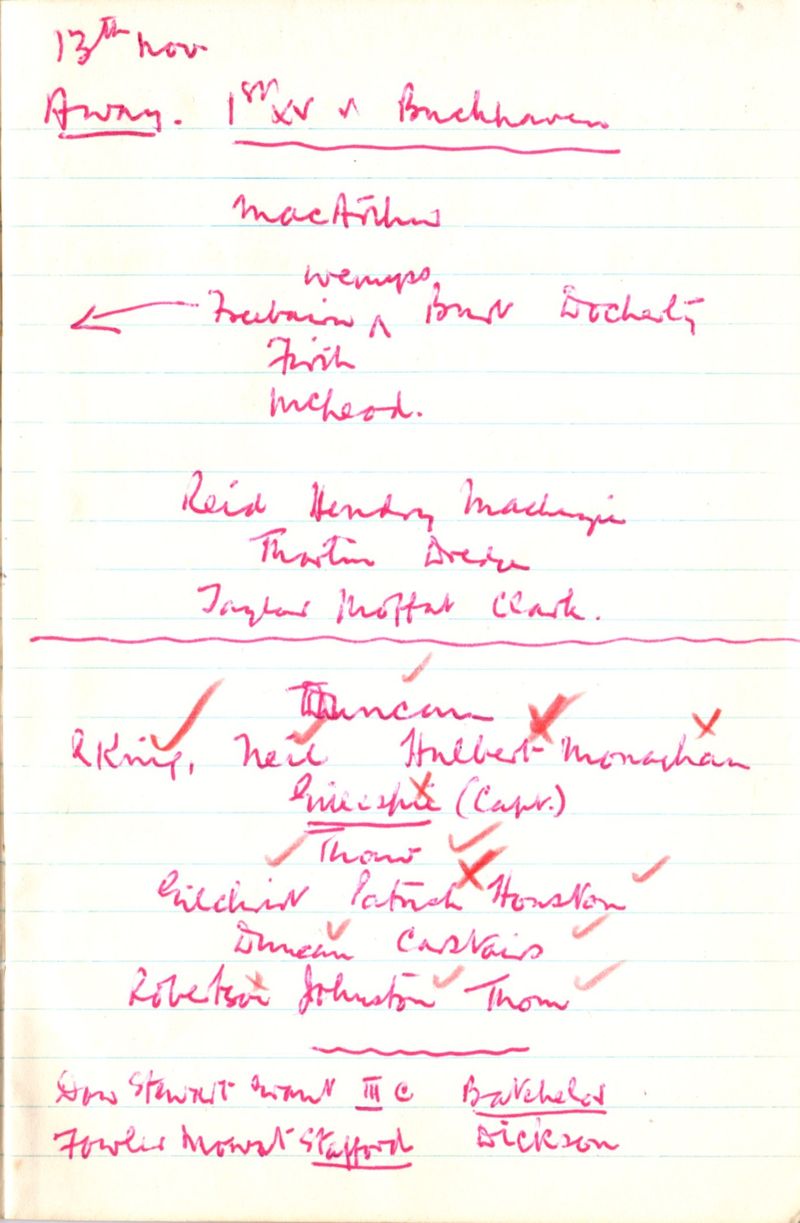 13th Nov
Away. 1st XV v Buckhaven
MacArthur
Wemyss
Freebairn ^ Burt Docherty
Firth
McLeod.
Reid Hendry Mackenzie
Martin Dredge
Taylor Moffat Clark.
Duncan
R King, Neil Hulbert Monaghan
Gillespie (Capt.)
Thaw
Gilchrist Patrick Houston
Duncan Carstairs
Robertson Johnston Thom
Dow Stewart Grant III C Batchelor
Fowler Mowat Stafford Dickson